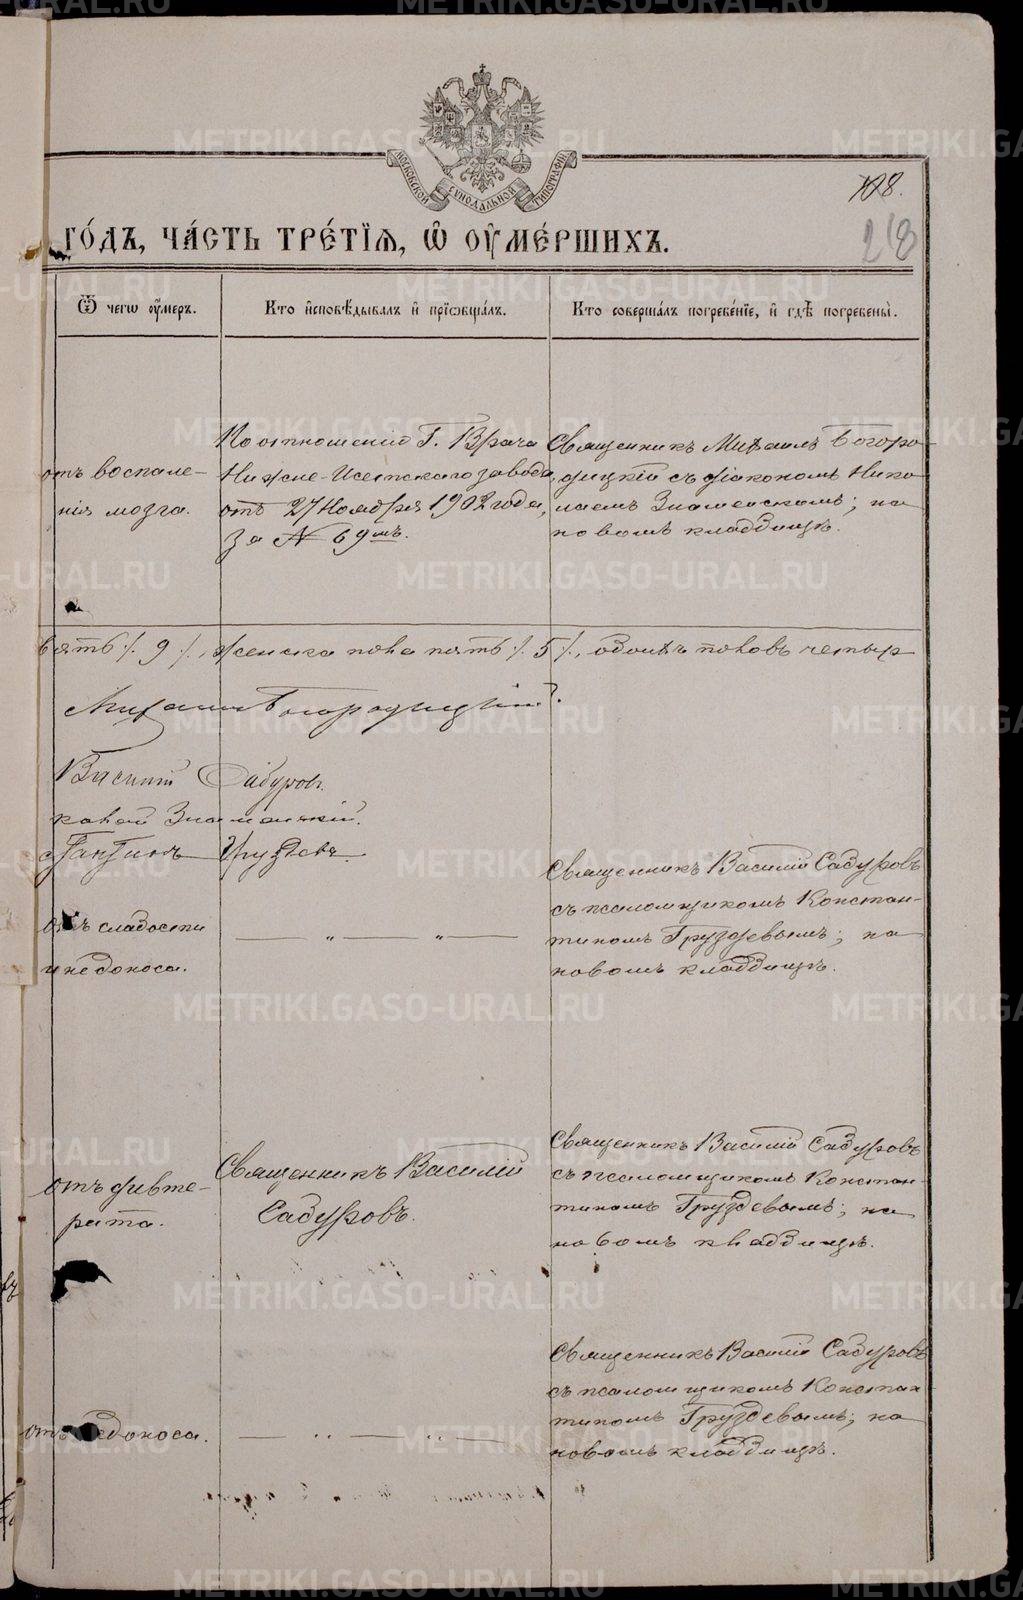 МОСКОВСКОЙ СУНОДАЛЬНОЙ ТИПОГРАФІИ
108.
218
ГО́ДЪ, ЧА́СТЬ ТРЕ́ТІѦ, Ѡ҆ ОУ҆МЕ́РШИХЪ.
Ѿ чегѡ оу҆меръ.
Кто и҆сповѣ́дывалъ и҆ прїѻбща́лъ.
Кто соверша́лъ погребе́нїе, и҆ гдѣ̀ погребены̀.
отъ воспале-
нія мозга.
По отношенію Г. Врача
Нижне-Исетскаго завода,
отъ 27 Ноября 1902 года,
за № 69мъ.
Священникъ Михаилъ Богоро-
дицкій съ діакономъ Нико
лаемъ Знаменскимъ; на
новомъ кладбищѣ.
вять ./. 9 ./., женска пола пять ./. 5 ./., обоихъ половъ четыр
Михаилъ Богородицкій.
Василій Сабуровъ.
Знаменскій.
стантинъ Груздевъ.
отъ слабости
и недоноса.
— „ — „ —
Священникъ Василій Сабуровъ
съ псаломщикомъ Констан-
тиномъ Груздевымъ; на
новомъ кладбищѣ.
отъ дифте-
рита.
Священникъ Василій
Сабуровъ.
Священникъ Василій Сабуровъ
съ псаломщикомъ Констан-
тиномъ Груздевымъ; на
новомъ кладбищѣ.
отъ недоноса.
— „ — „ —
Священникъ Василій Сабуровъ
съ псаломщикомъ Констан-
тиномъ Груздевымъ; на
новомъ кладбищѣ.
METRIKI.GASO-URAL.RU